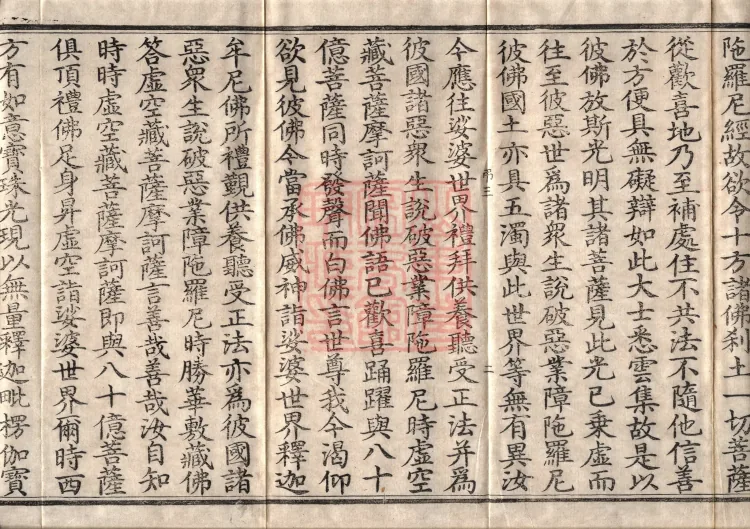 陁羅尼經故欲令十方諸佛刹土一切菩薩
從歡喜地乃至補處住不共法不隨他信善
於方便具無礙辯如此大士悉雲集故是以
彼佛放斯光明其諸菩薩見此光已乗虛而
往至彼惡世爲諸衆生說破惡業障陁羅尼
彼佛國土亦具五濁與此世界等無有異汝
今應往娑婆世界禮拜供養聽受正法并爲
彼國諸惡衆生說破惡業障陁羅尼時虛空
藏菩薩摩訶薩聞佛語已歡喜踊躍與八十
億菩薩同時發聲而白佛言世尊我今渴仰
欲見彼佛今當承佛威神詣娑婆世界釋迦
牟尼佛所禮覲供養聽受正法亦爲彼國諸
惡衆生說破惡業障陁羅尼時勝華敷藏佛
答虛空藏菩薩摩訶薩言善哉善哉汝自知
時時虛空藏菩薩摩訶薩即與八十億菩薩
俱頂禮佛足身昇虛空詣娑婆世界爾時西
方有如意寶珠光現以無量釋迦毗楞伽寶